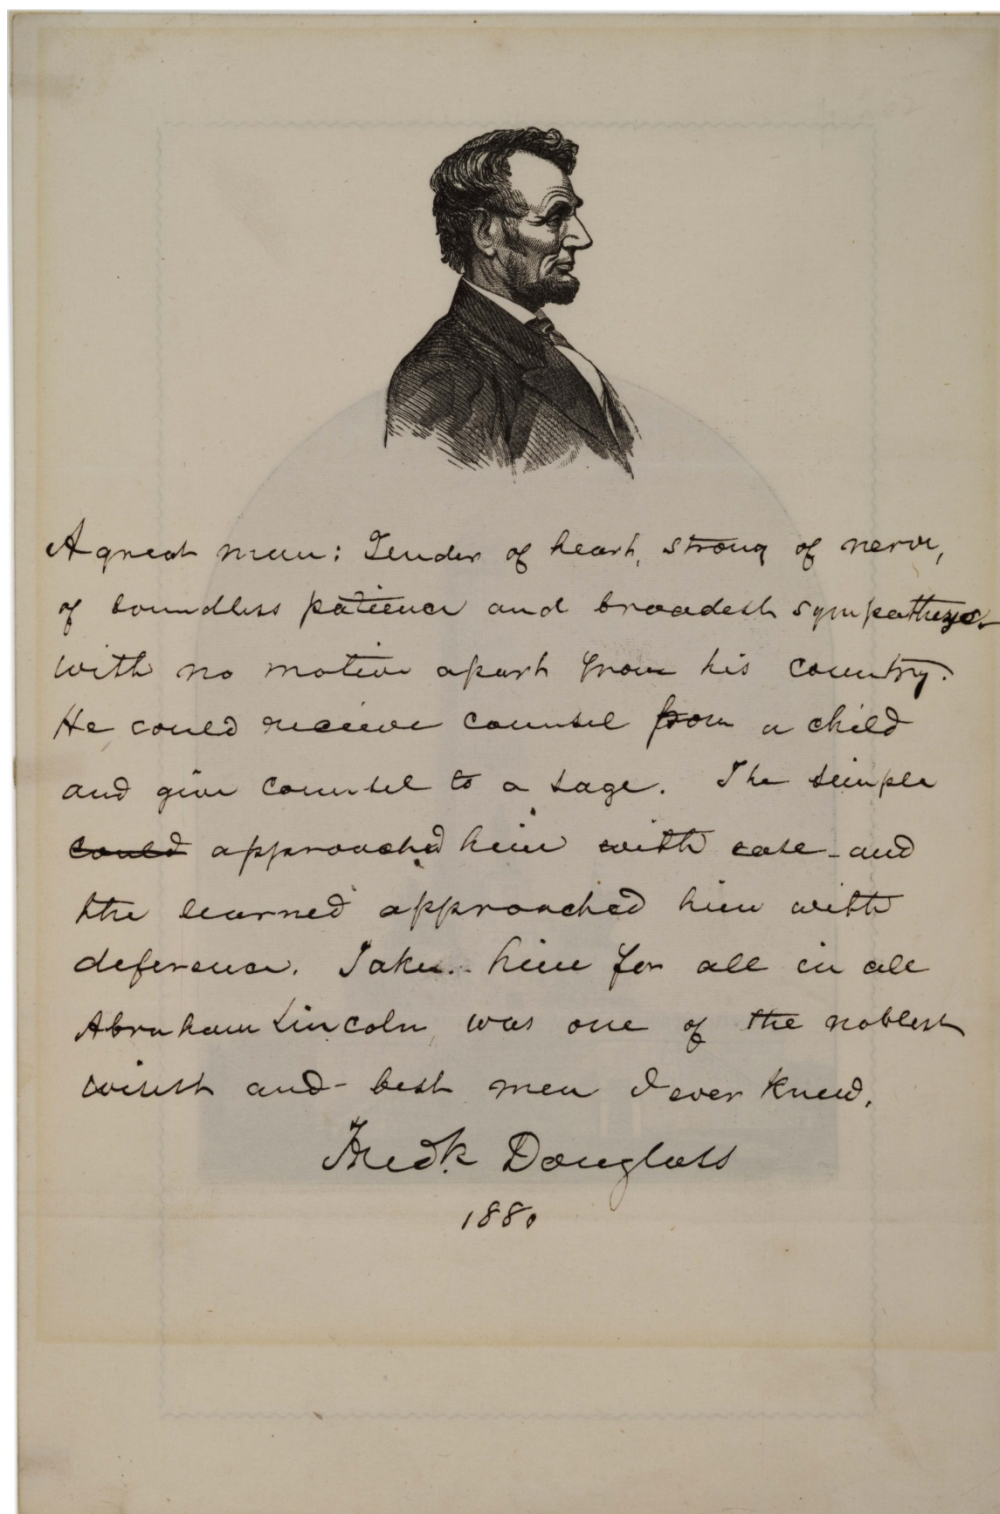 A great man: Tender of heart, strong of nerve,
of boundless patience and broadest sympathy
with no motive apart from his country.
He could receive counsel from a child
and give counsel to a sage. The simple
could approached him with ease - and
the learned approached him with
deference. Take him for all in all
Abraham Lincoln, was one of the noblest
wisest and best men I ever knew.
Fredk Douglass
1880